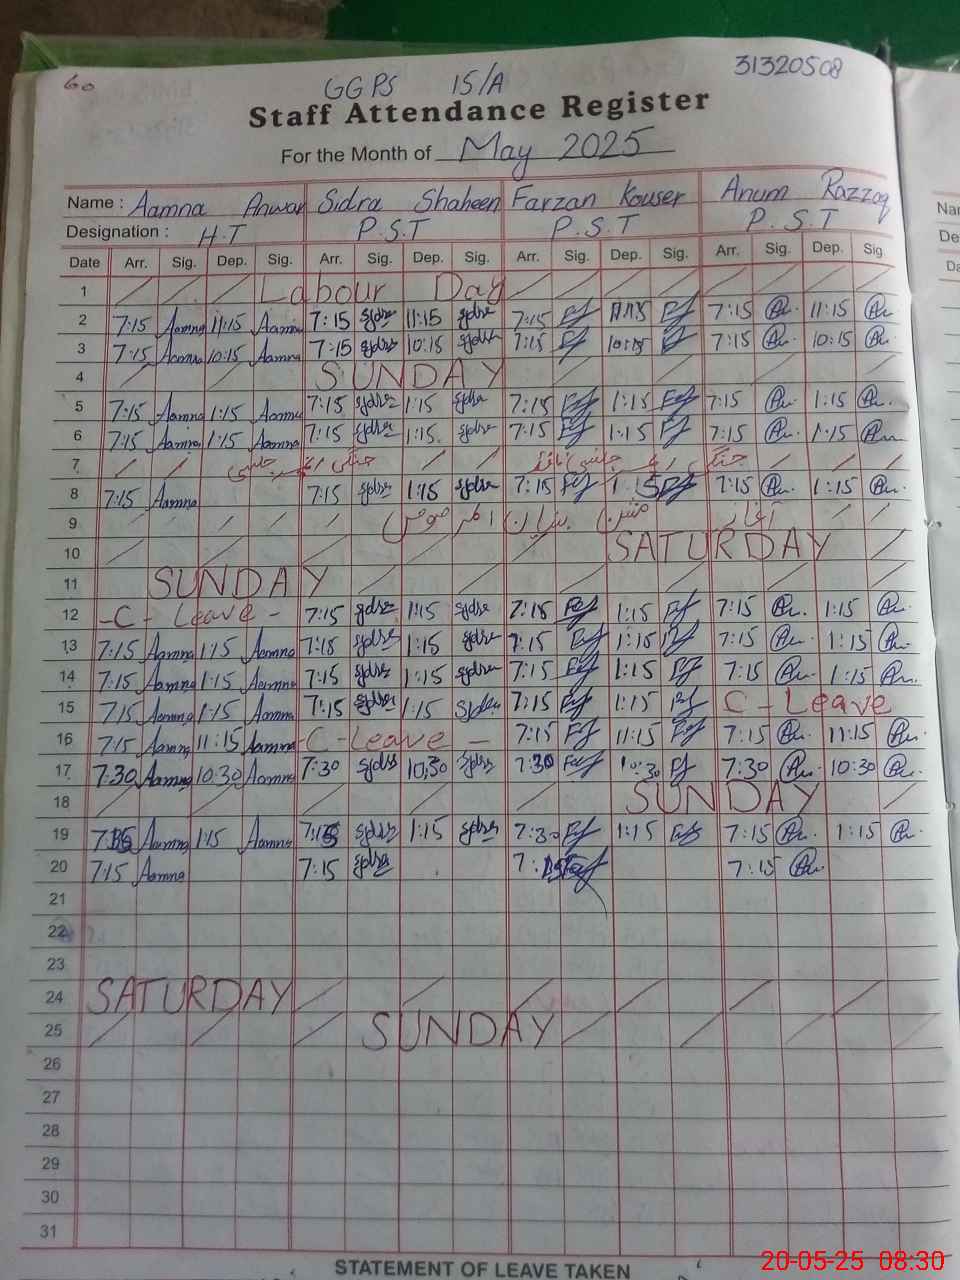 60
GGPS 15/A 31320508
Staff Attendance Register
For the Month of May 2025
Name : Aamna Anwar Sidra Shaheen Farzan Kouser Anum Razzaq
Designation : H.T P.S.T P.S.T P.S.T
Date Arr. Sig. Dep. Sig. Arr. Sig. Dep. Sig. Arr. Sig. Dep. Sig. Arr. Sig. Dep. Sig.
1 Labour Day
2 7:15 Aamna 11:15 Aamna 7:15 11:15 7:15 11:15 7:15 11:15
3 7:15 Aamna 10:15 Aamna 7:15 10:15 7:15 10:15 7:15 10:15
4 SUNDAY
5 7:15 Aamna 1:15 Aamna 7:15 1:15 7:15 1:15 7:15 1:15
6 7:15 Aamna 1:15 Aamna 7:15 1:15 7:15 1:15 7:15 1:15
7
8 7:15 Aamna 7:15 1:15 7:15 1:15 7:15 1:15
9
10 SATURDAY
11 SUNDAY
12 -C- Leave - 7:15 1:15 7:15 1:15 7:15 1:15
13 7:15 Aamna 1:15 Aamna 7:15 1:15 7:15 1:15 7:15 1:15
14 7:15 Aamna 1:15 Aamna 7:15 1:15 7:15 1:15 7:15 1:15
15 7:15 Aamna 1:15 Aamna 7:15 1:15 7:15 1:15 C - Leave
16 7:15 Aamna 11:15 Aamna -C-Leave - 7:15 11:15 7:15 11:15
17 7:30 Aamna 10:30 Aamna 7:30 10:30 7:30 10:30 7:30 10:30
18 SUNDAY
19 Aamna 1:15 Aamna 7:15 1:15 7:30 1:15 7:15 1:15
20 7:15 Aamna 7:15 7:15
21
22
23
24 SATURDAY
25 SUNDAY
26
27
28
29
30
31
STATEMENT OF LEAVE TAKEN
20-05-25 08:30